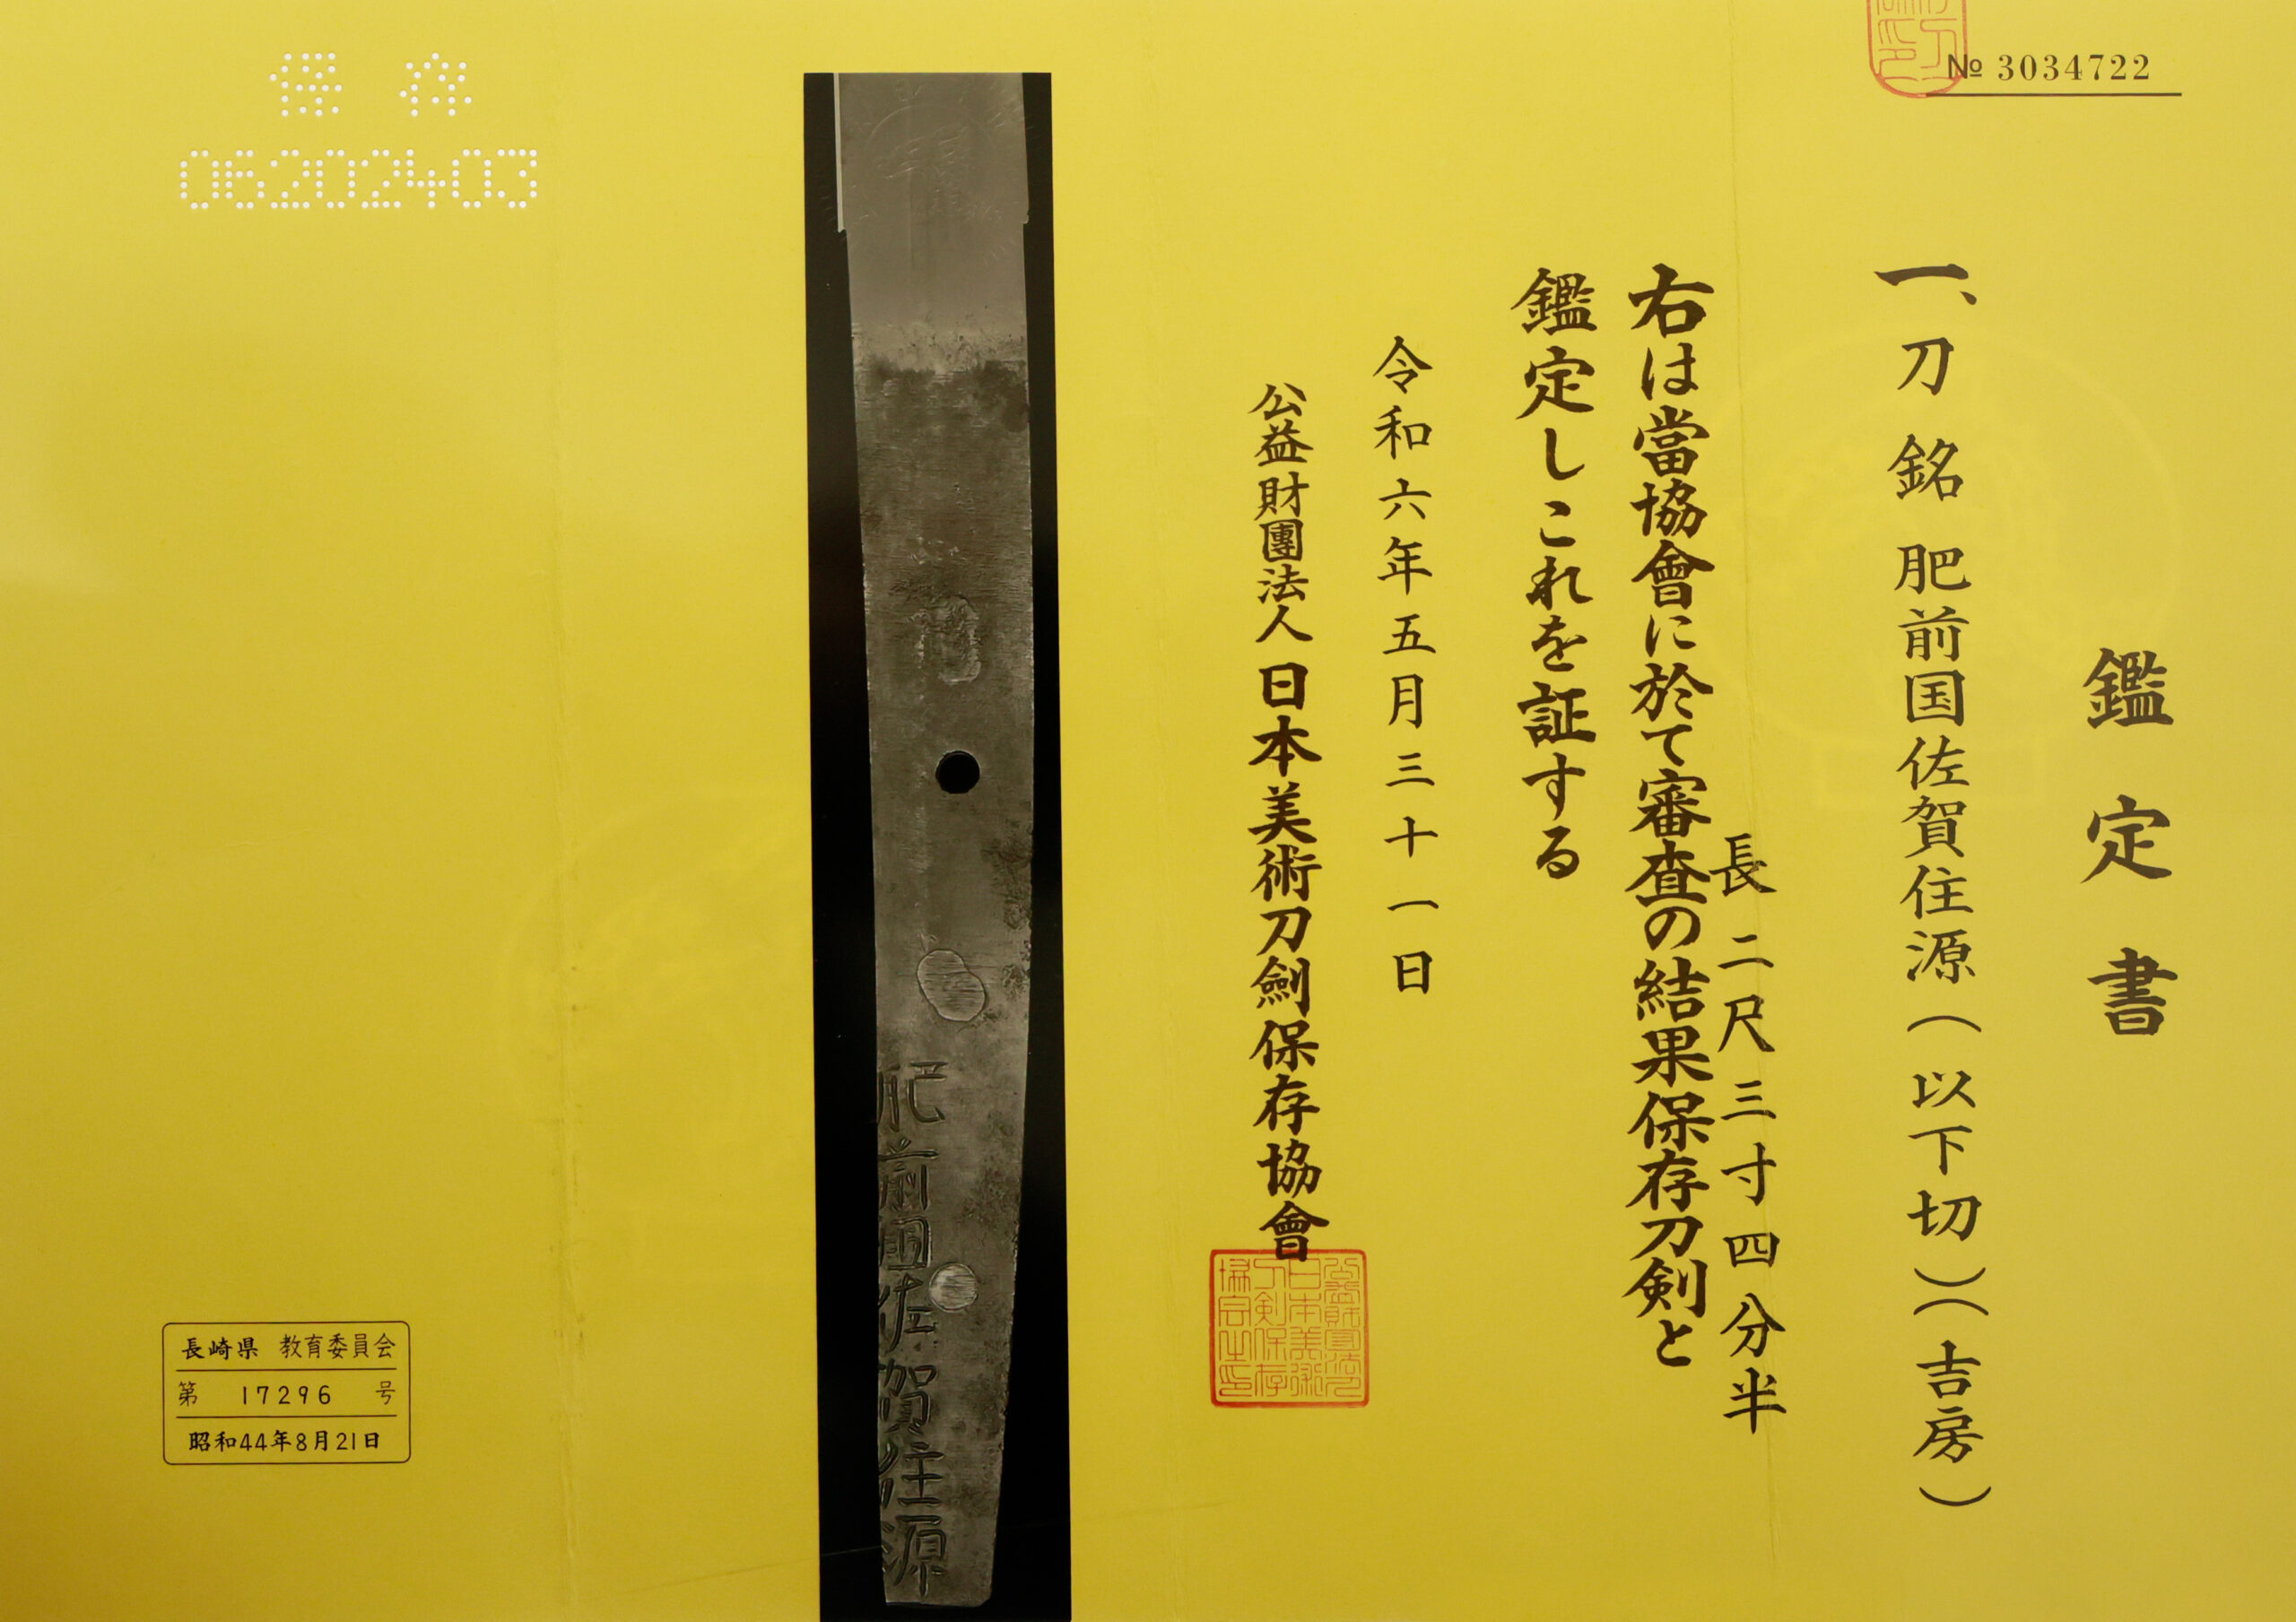 № 3034722
鑑定書
一、刀 銘 肥前国佐賀住源(以下切)(吉房)
長 二尺三寸四分半
右は當協會に於て審査の結果保存刀剣と
鑑定しこれを証する
令和六年五月三十一日
公益財團法人 日本美術刀劍保存協會
肥前國佐賀住源
保存
06202403
長崎県 教育委員会
第 17296 号
昭和44年8月21日